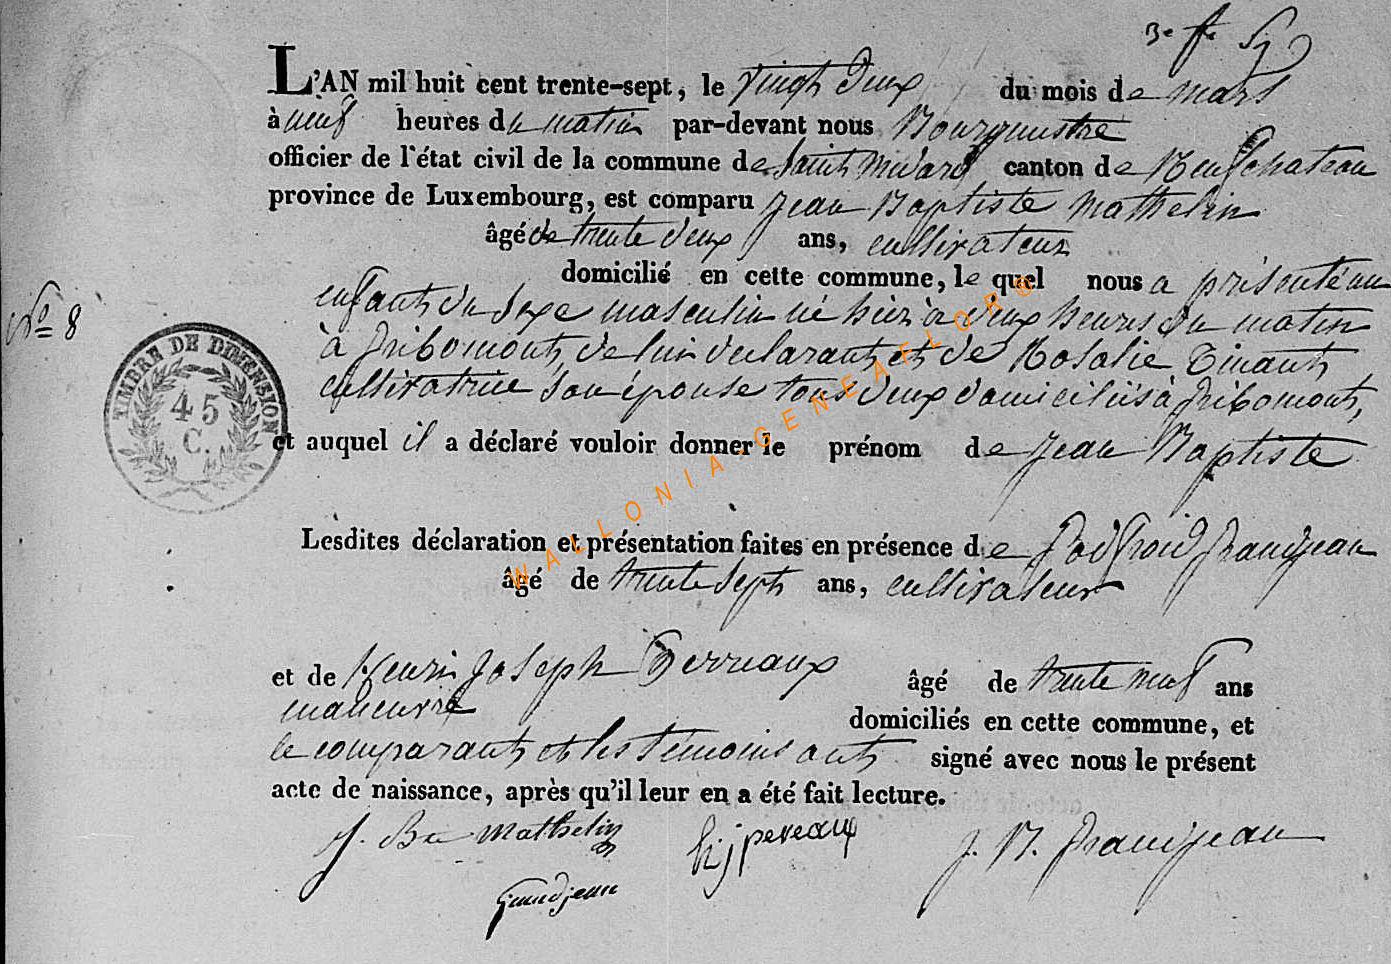 3e ffe
L'AN mil huit cent trente-sept, le vingt deux du mois de mars
à neuf heures du matin par-devant nous Bourgmestre
officier de l'état civil de la commune de Saint Médard canton de Neufchateau
province de Luxembourg, est comparu Jean Baptiste Mathelin
âgé de trente deux ans, cultivateur
domicilié en cette commune, le quel nous a présenté un
enfant du sexe masculin né hier à deux heures du matin
N° 8
à Gribomont, de lui declarant et de Rosalie Tinant
cultivatrice son épouse tous deux domiciliés à Gribomont,
TIMBRE DE DIMENSION
45
C.
et auquel il a déclaré vouloir donner le prénom de Jean Baptiste
Lesdites déclaration et présentation faites en présence de Godfroid Grandjean
âgé de trente sept ans, cultivateur
et de Henri Joseph Perreaux âgé de trente neuf ans
maneuvre domiciliés en cette commune, et
le comparant et les témoins ont signé avec nous le présent
acte de naissance, après qu'il leur en a été fait lecture.
J. Bte Mathelin hj pereaux J. N. Grandjean
Grandjean
WALLONIA-GENEAFLOR©